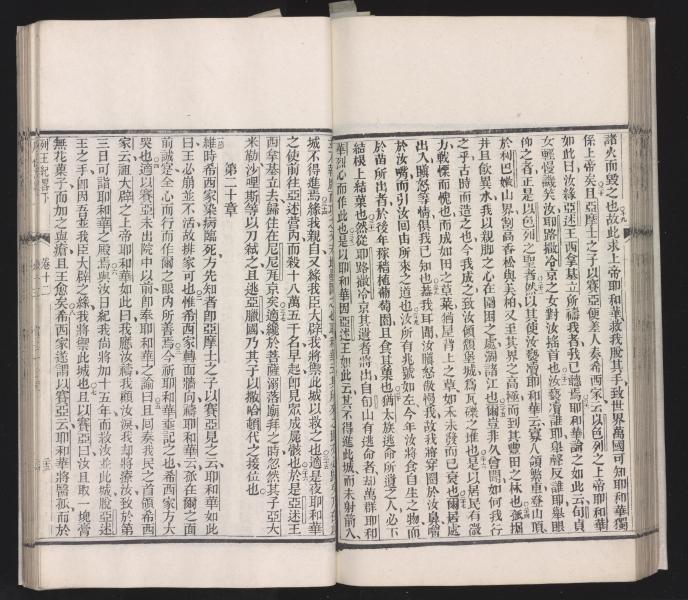 諸火而毀之也故此求上帝耶和華救我脫其手致世界萬國可知耶和華獨
係上帝矣且亞摩士之子以賽亞便差人奏希西家云以色列之上帝耶和華
如此曰汝緣亞述王西拿基立所禱我者我已聽焉耶和華諭之如此云旬貞
女輕慢譏笑汝耶路撒冷京之女對汝搖首也汝褻瀆誰耶舉聲反誰耶舉眼
仰之者正是以色列之聖者然以其使汝褻瀆耶和華云寡人領緊車登山頂
於利巴嫩山界割高香松與美柏又至其界之高極而到其豐田之林也孤掘
井且飲異水我以親脚之心在圍困之處涸諸江也爾豈非久曾聞如何我行
之乎古時而造之也今我成之致汝傾頹堡城為瓦礫之堆也是以居民有微
力戰慄而愧也而成如田之草萊猶屋背上之草如禾未發而已衰也爾居處
出入瞋怒等情俱我已知也葢我耳聞汝瞋怒傲慢我故我將穿圈於汝鼻嚼
於汝嘴而引汝回由所來之道也汝所有兆號如左今年汝將食自生之物而
於苗所出者於後年稼穡植葡萄園且食其菓也猶太族逃命所遺之人必下
結根上結菓也然從耶路撒冷京其遺者將出自旬山有逃命者却萬群耶和
華烈心而作此也是以耶和華因亞述王如此云其不得進此城而未射箭入
城不得進焉緣我親自又緣我臣大辟我將禦此城以救之也適是夜耶和華
之使前往亞述營內而殺十八萬五千名早起卽見眾成屍骸也於是亞述王
西拿基立去歸住在尼尼瓦京矣適纔於菩薩溺落廟拜之時忽然其子亞大
米勒沙哩斯等以刀弒之且逃亞臘國乃其子以撒哈頓代之接位也
第二十章
維時希西家染病臨死方先知者卽亞摩士之子以賽亞見之云耶和華如此
曰王必崩並不活故排家可也惟希西家轉面牆向禱耶和華云孤在爾之面
前誠寔全心而行而作爾之眼內所善焉今祈耶和華垂記之也希西家方大
哭也適以賽亞未出院中以前卽奉耶和華之諭曰且囘奏我民之首領希西
家云祖大辟之上帝耶和華如此曰我應汝禱我顧汝淚我却將療汝致於第
三日可詣耶和華之殿焉與汝日紀我尚將加十五年而救汝並此城脫亞述
王之手卽因吾並我臣大辟之緣我將禦此城也且以賽亞曰汝且取一塊膏
無花菓子而加之與瘡且王愈矣希西家遂謂以賽亞云耶和華將醫孤而於
列王紀畧下
卷十二